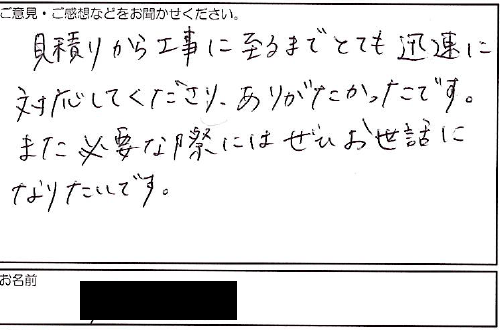 ご意見・ご感想などをお聞かせください。
見積りから工事に至るまでとても迅速に
対応してくださり、ありがたかったです。
また必要な際にはぜひお世話に
なりたいです。
お名前